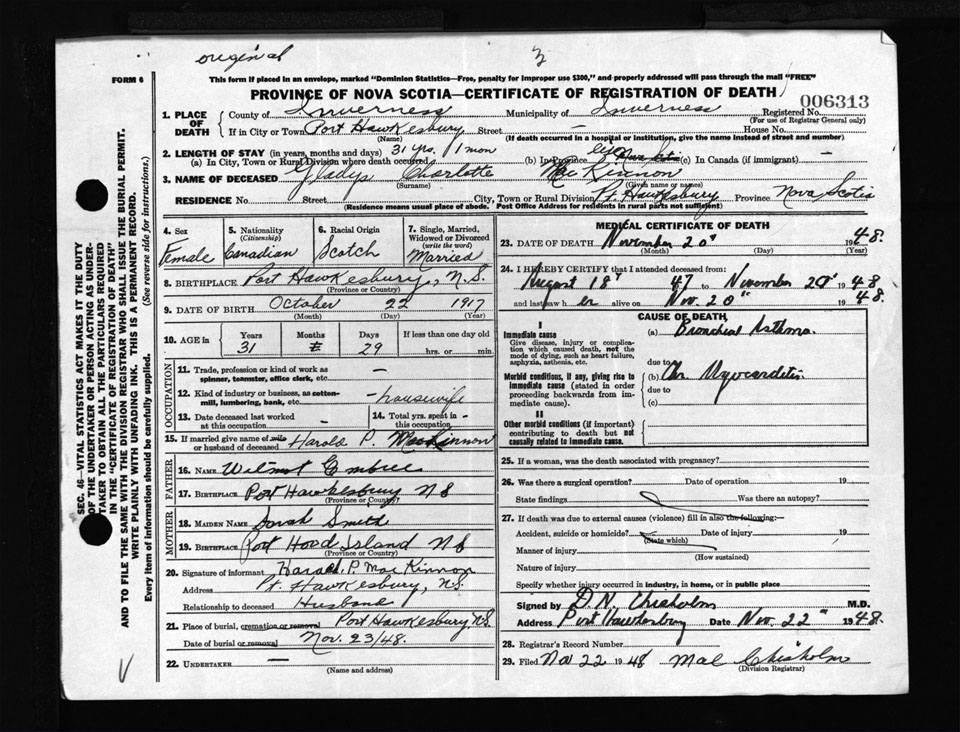 original 3
FORM 6
This form if placed in an envelope, marked "Dominion Statistics—Free, penalty for improper use $300," and properly addressed will pass through the mail "FREE"
PROVINCE OF NOVA SCOTIA—CERTIFICATE OF REGISTRATION OF DEATH
006313
1. PLACE OF DEATH
County of Inverness Municipality of Inverness Registered No.
(For use of Registrar General only)
If in City or Town Port Hawkesbury Street — House No.
(Name) (If death occurred in a hospital or institution, give the name instead of street and number)
2. LENGTH OF STAY (in years, months and days) 31 yrs. 1 mon
(a) In City, Town or Rural Division where death occurred (b) In Province life Nova Scotia (c) In Canada (if immigrant) —
3. NAME OF DECEASED Gladys Charlotte MacKinnon
(Surname) (Given name or names)
RESIDENCE No. Street City, Town or Rural Division Pt. Hawkesbury Province Nova Scotia
(Residence means usual place of abode. Post Office Address for residents in rural parts not sufficient)
4. Sex Female
5. Nationality (Citizenship) Canadian
6. Racial Origin Scotch
7. Single, Married, Widowed or Divorced (write the word) Married
8. BIRTHPLACE Port Hawkesbury, N.S.
(Province or Country)
9. DATE OF BIRTH October 22 1917
(Month) (Day) (Year)
10. AGE in Years Months Days If less than one day old
31 29 hrs. or min.
OCCUPATION
11. Trade, profession or kind of work as spinner, teamster, office clerk, etc. —
12. Kind of industry or business, as cotton-mill, lumbering, bank, etc. - housewife
13. Date deceased last worked at this occupation —
14. Total yrs. spent in this occupation -
15. If married give name of wife or husband of deceased Harold P. MacKinnon
FATHER
16. NAME Wilmot Embree
17. BIRTHPLACE Port Hawkesbury N S
(Province or Country)
MOTHER
18. MAIDEN NAME Sarah Smith
19. BIRTHPLACE Port Hood Island N S
(Province or Country)
20. Signature of informant Harold P. MacKinnon
Address Pt. Hawkesbury, N.S.
Relationship to deceased Husband
21. Place of burial, cremation or removal Port Hawkesbury N.S.
Date of burial or removal Nov. 23/48.
22. UNDERTAKER —
(Name and address)
MEDICAL CERTIFICATE OF DEATH
23. DATE OF DEATH November 20" 1948.
(Month) (Day) (Year)
24. I HEREBY CERTIFY that I attended deceased from:
August 18" 47 to November 20" 1948
and last saw h er alive on Nov. 20" 1948.
CAUSE OF DEATH
I
Immediate cause
Give disease, injury or complication which caused death, not the mode of dying, such as heart failure, asphyxia, asthenia, etc.
(a) Bronchial Asthma.
due to
Morbid conditions, if any, giving rise to immediate cause (stated in order proceeding backwards from immediate cause).
(b) Chr. Myocarditis
due to
(c)
II
Other morbid conditions (if important) contributing to death but not causally related to immediate cause.
25. If a woman, was the death associated with pregnancy?
26. Was there a surgical operation? Date of operation 19
State findings Was there an autopsy?
27. If death was due to external causes (violence) fill in also the following:—
Accident, suicide or homicide? Date of injury 19
(State which)
Manner of injury
(How sustained)
Nature of injury
Specify whether injury occurred in industry, in home, or in public place
Signed by D. N. Chisholm M.D.
Address Port Hawkesbury Date Nov. 22" 1948
28. Registrar's Record Number
29. Filed Nov 22 1948 Mal Chisholm
(Division Registrar)
SEC. 46—VITAL STATISTICS ACT MAKES IT THE DUTY
OF THE UNDERTAKER OR PERSON ACTING AS UNDERTAKER
TO OBTAIN ALL THE PARTICULARS REQUIRED
IN THE "CERTIFICATE OF REGISTRATION OF DEATH"
AND TO FILE THE SAME WITH THE DIVISION REGISTRAR WHO SHALL ISSUE THE BURIAL PERMIT.
WRITE PLAINLY WITH UNFADING INK. THIS IS A PERMANENT RECORD.
Every item of information should be carefully supplied. (See reverse side for instructions.)